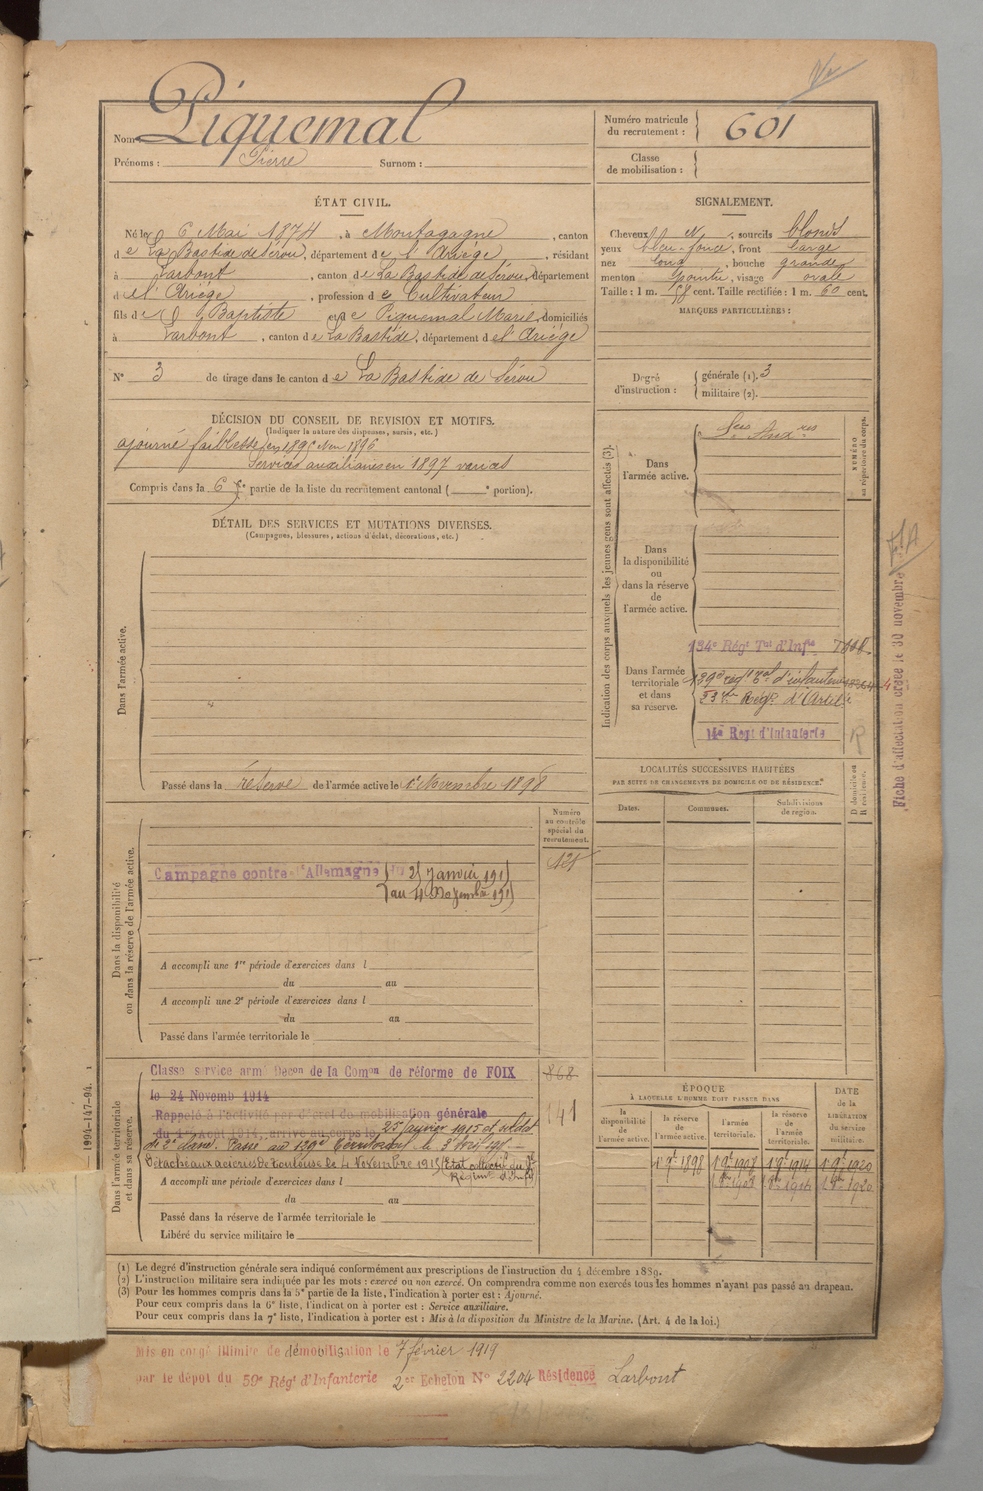 Nom Piquemal
Prénoms : Pierre Surnom :
Numéro matricule
du recrutement :
601
Classe
de mobilisation :
ÉTAT CIVIL.
Né le 6 Mai 1874, à Montagagne, canton
de La Bastide de Sérou, département de l'Ariège, résidant
à Larbont, canton de La Bastide de Sérou, département
de l'Ariège, profession de Cultivateur
fils de Baptiste et de Piquemal Marie, domiciliés
à Larbont, canton de La Bastide, département de l'Ariège
N° 3 de tirage dans le canton de La Bastide de Sérou
SIGNALEMENT.
Cheveux N, sourcils blonds
yeux bleu-foncé, front large
nez long, bouche grande
menton pointu, visage ovale
Taille : 1 m. 58 cent. Taille rectifiée : 1 m. 60 cent.
MARQUES PARTICULIÈRES :
Degré
d'instruction :
générale (1). 3
militaire (2).
DÉCISION DU CONSEIL DE REVISION ET MOTIFS.
(Indiquer la nature des dispenses, sursis, etc.)
ajourné faiblesse en 1895 1896
Services auxiliaires en 1897
Compris dans la 6e partie de la liste du recrutement cantonal ( e portion).
DÉTAIL DES SERVICES ET MUTATIONS DIVERSES.
(Campagnes, blessures, actions d'éclat, décorations, etc.)
Dans l'armée active.
Passé dans la réserve de l'armée active le 1er Novembre 1898
Indication des corps auxquels les jeunes gens sont affectés (3).
NUMÉRO
au répertoire du corps.
Dans
l'armée active.
Sces Auxres
Dans
la disponibilité
ou
dans la réserve
de
l'armée active.
Dans l'armée
territoriale
et dans
sa réserve.
134e Régt Tal d'Infie
139e régt Tal d'infanterie
14e Regt d'Infanterie
R
Fiche d'affectation créée le 30 novembre
LOCALITÉS SUCCESSIVES HABITÉES
PAR SUITE DE CHANGEMENTS DE DOMICILE OU DE RÉSIDENCE.
D domicile ou
R résidence.
Dates.
Communes.
Subdivisions
de région.
Numéro
au contrôle
spécial du
recrutement.
Dans la disponibilité
ou dans la réserve de l'armée active.
Campagne contre l'Allemagne du 25 Janvier 1915
au 4 Novembre 1915
A accompli une 1re période d'exercices dans l
du au
A accompli une 2e période d'exercices dans l
du au
Passé dans l'armée territoriale le
Dans l'armée territoriale
et dans sa réserve.
Classé service armé Decon de la Comon de réforme de FOIX
868
le 24 Novemb 1914
141
Rappelé à l'activité par décret de mobilisation générale
du 1er Août 1914, arrivé au corps le 25 janvier 1915 et soldat
de 2e classe. Passé au 139e Territorial le 3 mai 1915
Détaché aux aciéries de Toulouse le 4 Novembre 1915 (Etat collectif du 14e
Régiment d'Infie)
A accompli une période d'exercices dans l
du au
Passé dans la réserve de l'armée territoriale le
Libéré du service militaire le
ÉPOQUE
À LAQUELLE L'HOMME DOIT PASSER DANS
la
disponibilité
de
l'armée active.
la réserve
de
l'armée active.
l'armée
territoriale.
la réserve
de
l'armée
territoriale.
DATE
de la
LIBÉRATION
du service
militaire.
1898 1908 1914 1920
1994-147-94.
(1) Le degré d'instruction générale sera indiqué conformément aux prescriptions de l'instruction du 4 décembre 1889.
(2) L'instruction militaire sera indiquée par les mots : exercé ou non exercé. On comprendra comme non exercés tous les hommes n'ayant pas passé au drapeau.
(3) Pour les hommes compris dans la 5e partie de la liste, l'indication à porter est : Ajourné.
Pour ceux compris dans la 6e liste, l'indication à porter est : Service auxiliaire.
Pour ceux compris dans la 7e liste, l'indication à porter est : Mis à la disposition du Ministre de la Marine. (Art. 4 de la loi.)
Mis en congé illimité de démobilisation le 7 février 1919
par le dépôt du 59e Régt d'Infanterie 2e Echelon N° 2204 Résidence Larbont